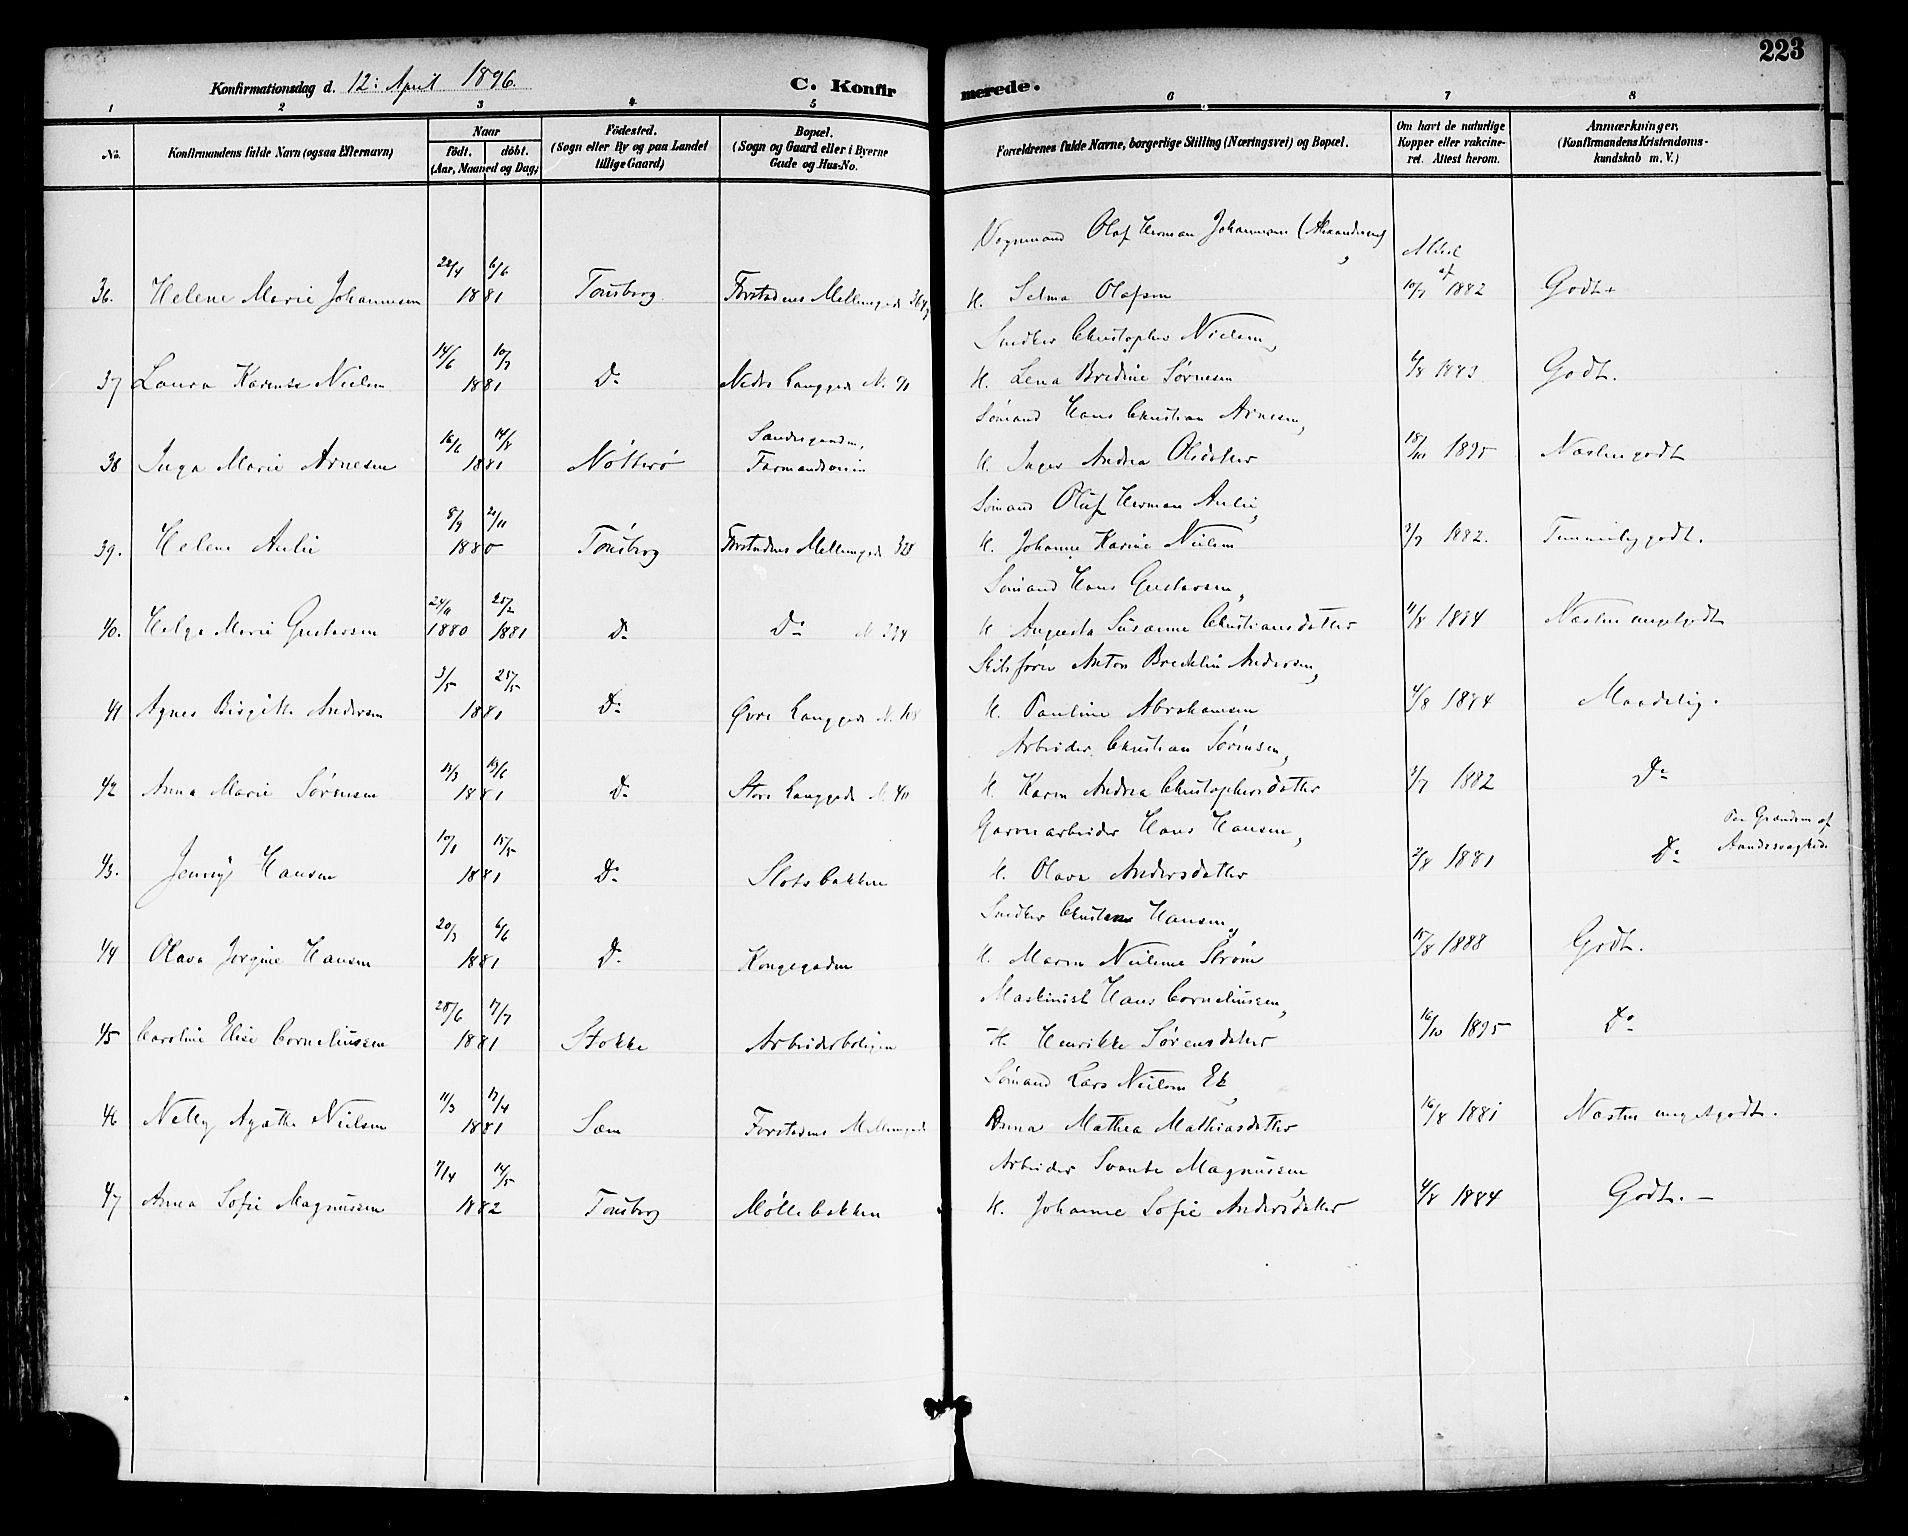 223
Konfirmationsdag d. 12: April 1896.
C. Konfirmerede.
1 2 3 4 5 6 7 8
No.
Konfirmandens fulde Navn (ogsaa Efternavn)
Naar
födt.
döbt.
(Aar, Maaned og Dag)
Födested.
(Sogn eller By og paa Landet
tillige Gaard)
Bopæl.
(Sogn og Gaard eller i Byerne
Gade og Hus-No.
Forældrenes fulde Navne, borgerlige Stilling (Næringsvei) og Bopæl.
Om havt de naturlige
Kopper eller vakcine-
ret. Attest herom.
Anmærkninger.
(Konfirmandens Kristendoms-
kundskab m. V.)
Vognmand Olaf Herman Johannesen (Alexandersen)
Attest af
36. Helene Marie Johannesen 22/4 6/6 1881 Tønsberg. Forstadens Mellemgade H. Selma Olafsen 10/7 1882 Godt +
Snedker Christopher Nielsen,
37 Laura Karense Nielsen 14/6 10/7 1881 Do Nedre Langgade N. 91 H. Lena Bredine Sørnesen 1883 Godt.
Sømand Hans Christian Arnesen,
38 Inga Marie Arnesen 16/6 14/8 1881 Nøtterø Farmandsveien H. Inger Andrea Olsdatter 18/10 1895 Næsten godt
Sømand Oluf Herman Aulie,
39. Helene Aulie 8/9 21/11 1880 Tønsberg Forstadens Mellemgade 328 H. Johanne Karine Nielsen 3/7 1882. Temmelig godt.
Sømand Hans Gustavsen,
40. Helga Marie Gustavsen 24/11 1880 25/2 1881 Do Do H. Augusta Susanne Christiansdatter 4/8 1884 Næsten meget godt
Skibsfører Anton Brecklin Andersen,
41 Agnes Birgitte Andersen 3/5 25/5 1881 Do Øvre Langgade H. Pauline Abrahamsen 4/8 1884 Maadelig.
Arbeider Christian Sørensen,
42 Anna Marie Sørensen 13/3 19/6 1881 Do Store Langgade N. 40 H. Karen Andrea Christophersdatter 3/7 1882 Do
Garverarbeider Hans Hansen,
43. Jenny Hansen 10/1 15/5 1881 Do Slotsbakken H. Olava Andersdatter 2/8 1881 Do Paa Grund af Aandssvaghed
Snedker Christian Hansen,
44 Olava Jørgine Hansen 20/3 6/6 1881 Do Kongegaden H. Maren Nieline Strøm 15/8 1888 Godt.
Maskinist Hans Corneliussen,
45 Caroline Elise Corneliussen 28/6 17/7 1881 Stokke Arbeiderboligen H. Henrikke Sørensdatter 16/10 1895 Do
Sømand Lars Nielsen Ek,
46 Nelly Agathe Nielsen 11/3 17/4 1881 Sæm Forstadens Mellemgade Anna Mathea Mathiasdatter 16/8 1881 Næsten meget godt.
Arbeider Svante Magnussen
47 Anna Sofie Magnussen 7/4 14/5 1882 Tønsberg Møllebakken H. Johanne Sofie Andersdatter 4/8 1884 Godt. –